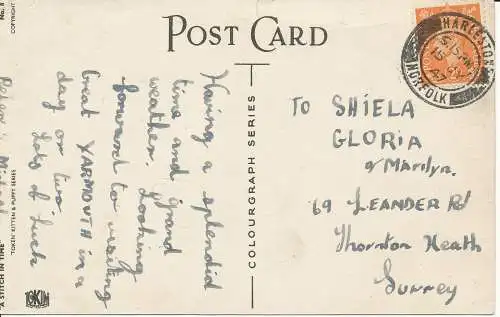 POST CARD
Having a splendid
time and grand
weather. Looking
forward to visiting
Great YARMOUTH in a
day or two
Lots of Luck
TO SHIELA
GLORIA
& Marilyn.
69 LEANDER Rd
Thornton Heath
Surrey
COLOURGRAPH SERIES
HARLESTON
NORFOLK
No. 8
COPYRIGHT
"TOKIM" KITTEN & PUPPY SERIES
"A STITCH IN TIME"
TOKIM